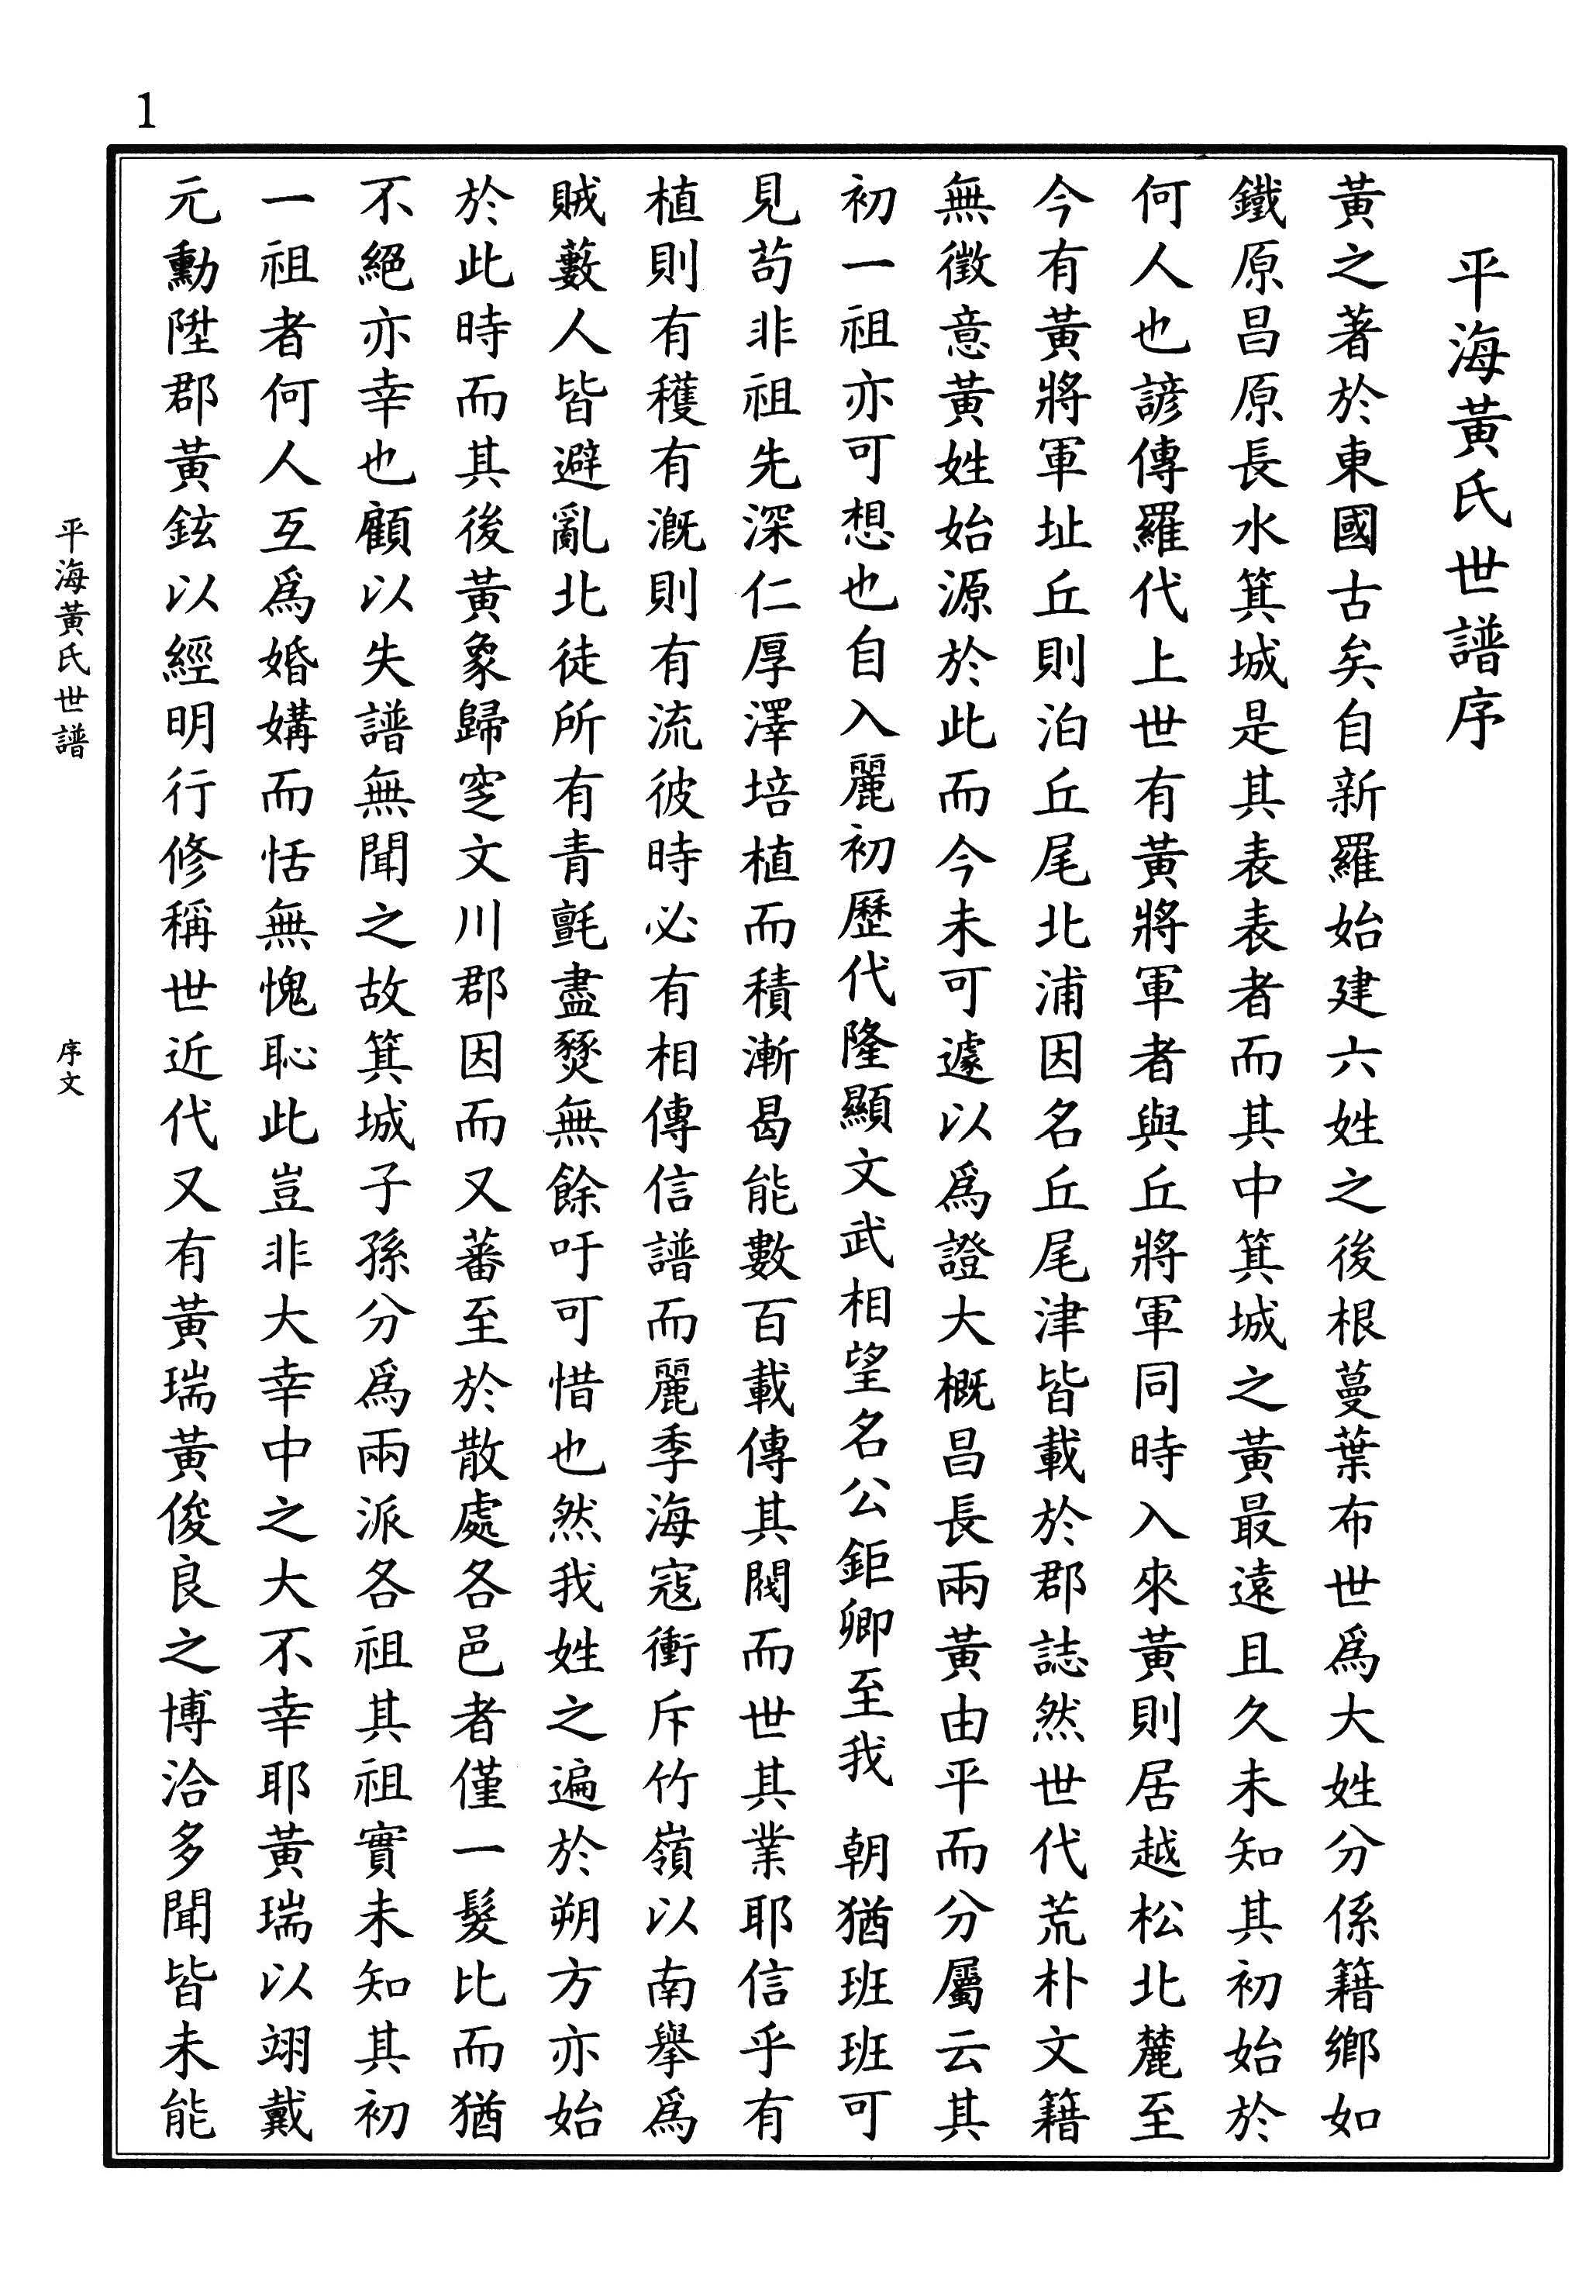 1
平海黃氏世譜序
黃之著於東國古矣自新羅始建六姓之後根蔓葉布世爲大姓分係籍鄉如
鐵原昌原長水箕城是其表表者而其中箕城之黃最遠且久未知其初始於
何人也諺傳羅代上世有黃將軍者與丘將軍同時入來黃則居越松北麓至
今有黃將軍址丘則泊丘尾北浦因名丘尾津皆載於郡誌然世代荒朴文籍
無徵意黃姓始源於此而今未可遽以爲證大概昌長兩黃由平而分屬云其
初一祖亦可想也自入麗初歷代隆顯文武相望名公鉅卿至我 朝猶班班可
見苟非祖先深仁厚澤培植而積漸曷能數百載傳其閥而世其業耶信乎有
植則有穫有漑則有流彼時必有相傳信譜而麗季海寇衝斥竹嶺以南擧爲
賊藪人皆避亂北徒所有青氈盡燹無餘吁可惜也然我姓之遍於朔方亦始
於此時而其後黃象歸窆文川郡因而又蕃至於散處各邑者僅一髮比而猶
不絕亦幸也顧以失譜無聞之故箕城子孫分爲兩派各祖其祖實未知其初
一祖者何人互爲婚媾而恬無愧恥此豈非大幸中之大不幸耶黃瑞以翊戴
元勳陞郡黃鉉以經明行修稱世近代又有黃瑞黃俊良之博洽多聞皆未能
平海黃氏世譜
序文